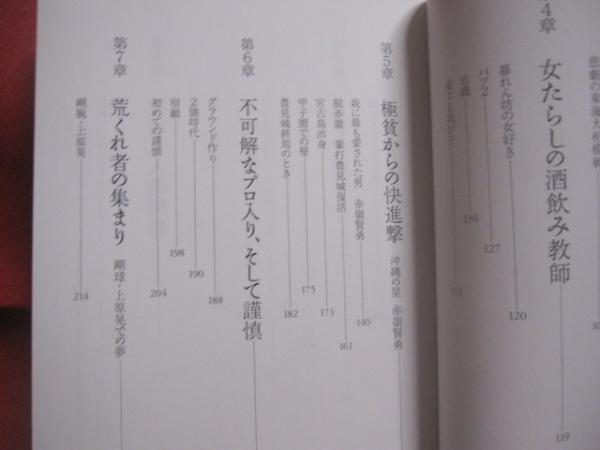 悲劇の東海大相模戦
第4章
女たらしの酒飲み教師
119
暴れん坊の女好き
120
パブ2
127
130
第5章
極貧からの快進撃 沖縄の星 赤嶺賢勇
栽に最も愛された男 赤嶺賢勇
140
脱赤嶺 豪打豊見城復活
161
宮古島出身
173
甲子園での壁
175
豊見城終焉のとき
182
第6章
不可解なプロ入り、そして謹慎
グラウンド作り
188
2強時代
190
宿敵
198
初めての謹慎
204
第7章
荒くれ者の集まり 剛球・上原晃での夢
剛腕・上原晃
214